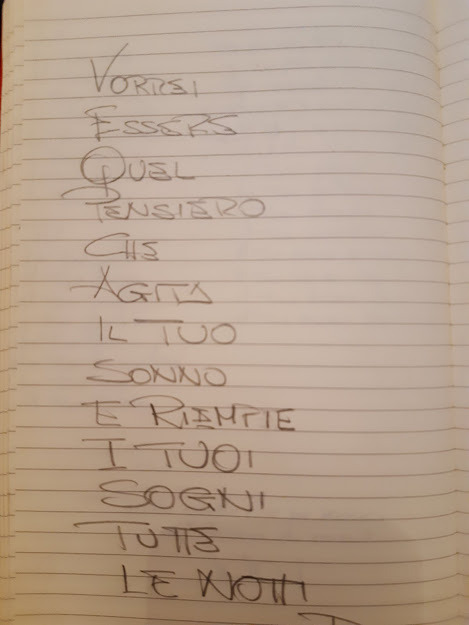 VORREI
ESSERE
QUEL
PENSIERO
CHE
AGITA
IL TUO
SONNO
E RIEMPIE
I TUOI
SOGNI
TUTTE
LE NOTTI